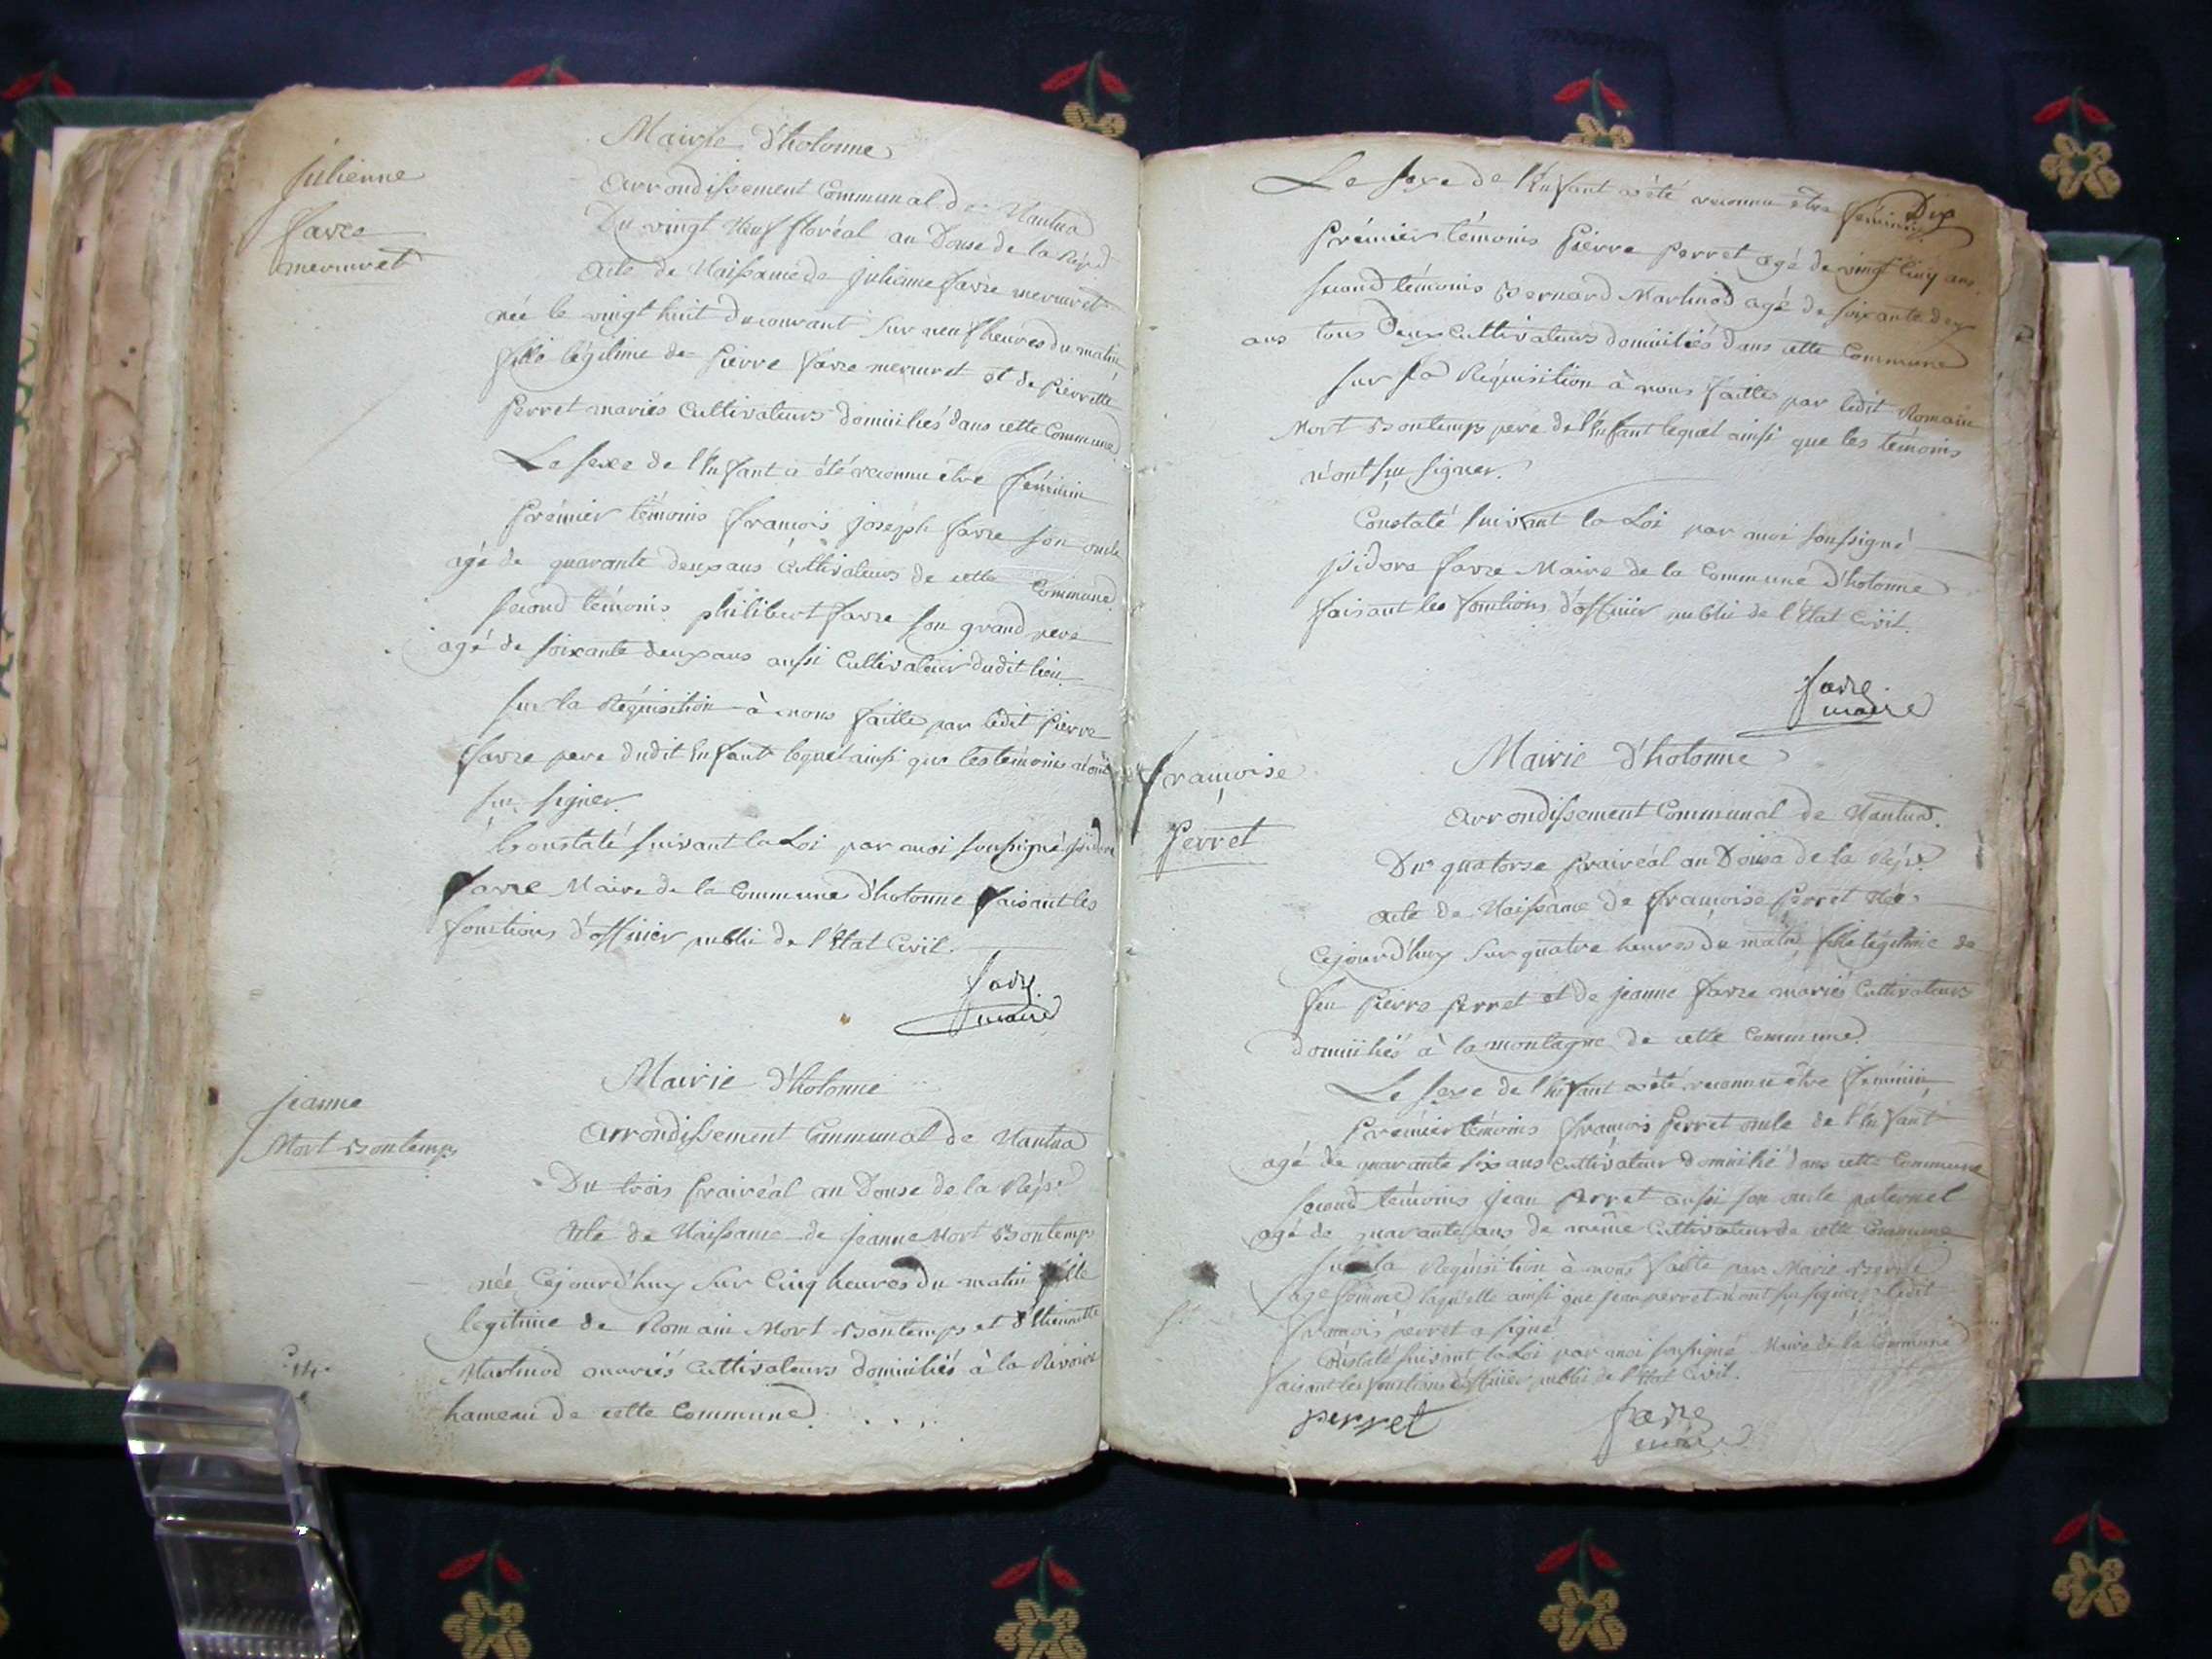 Mairie d'hotonne
julienne
favre
mermet
Arrondissement Communal de Nantua
Du vingt Neuf floréal an Douse de la Rép.e
Acte de Naissance de julienne favre mermet
née le vingt huit du courant sur neuf heures du matin
fille légitime de Pierre favre mermet et de pierrette
perret mariés Cultivateurs domiciliés dans cette Commune
Le sexe de l'Enfant a été reconnu être féminin
Prémier témoins françois joseph favre son oncle
agé de quarante deux ans Cultivateurs de cette Commune
second témoins philibert favre son grand pere
agé de soixante deux ans aussi Cultivateur dudit lieu
sur la Réquisition à nous faitte par ledit Pierre
favre pere dudit Enfant lequel ainsi que les témoins n'ont
su signer.
Constaté suivant la Loi par moi soussigné isidore
favre Maire de la Commune d'hotonne faisant les
fonctions d'officier public de l'État Civil.
favre
maire
Mairie d'hotonne
jeanne
Mort Bontemps
Arrondissement Communal de Nantua
Du trois prairéal an Douse de la Rép.e
Acte de Naissance de jeanne Mort Bontemps
née Cejourd'huy sur Cinq heures du matin fille
legitime de Romain Mort Bontemps et d'Etiennette
Martinod mariés Cultivateurs domiciliés à la Rivoire
hameau de cette Commune
Dix
Le sexe de l'Enfant a été reconnu être féminin
Prémier témoins Pierre perret agé de vingt Cinq ans
second témoins Bernard Martinod agé de soixante dix
ans tous Deux Cultivateurs domiciliés dans cette Commune
sur la Réquisition à nous faitte par ledit Romain
Mort Bontemps pere de l'Enfant lequel ainsi que les témoins
n'ont su signer.
Constaté suivant la Loi par moi soussigné
isidore favre Maire de la Commune d'hotonne
faisant les fonctions d'officier public de l'État Civil.
favre
maire
Mairie d'hotonne
françoise
Perret
Arrondissement Communal de Nantua.
Du quatorse prairéal an Douse de la Rép.e
Acte de Naissance de françoise Perret Née
Cejourd'huy sur quatre heures du matin fille légitime de
feu Pierre perret et de jeanne favre mariés Cultivateurs
domiciliés à la montagne de cette Commune.
Le sexe de l'Enfant a été reconnu être féminin
Prémier témoins françois Perret oncle de l'Enfant
agé de quarante six ans Cultivateur domicilié dans cette Commune
second témoins jean Perret aussi son oncle paternel
agé de quarante ans de même Cultivateur de cette Commune
sur la Réquisition à nous faitte par Marie
sage femme laquelle ainsi que jean perret n'ont su signer ledit
françois perret a signé
Constaté suivant la Loi par moi soussigné Maire de la Commune
faisant les fonctions d'officier public de l'État Civil.
perret
favre
maire